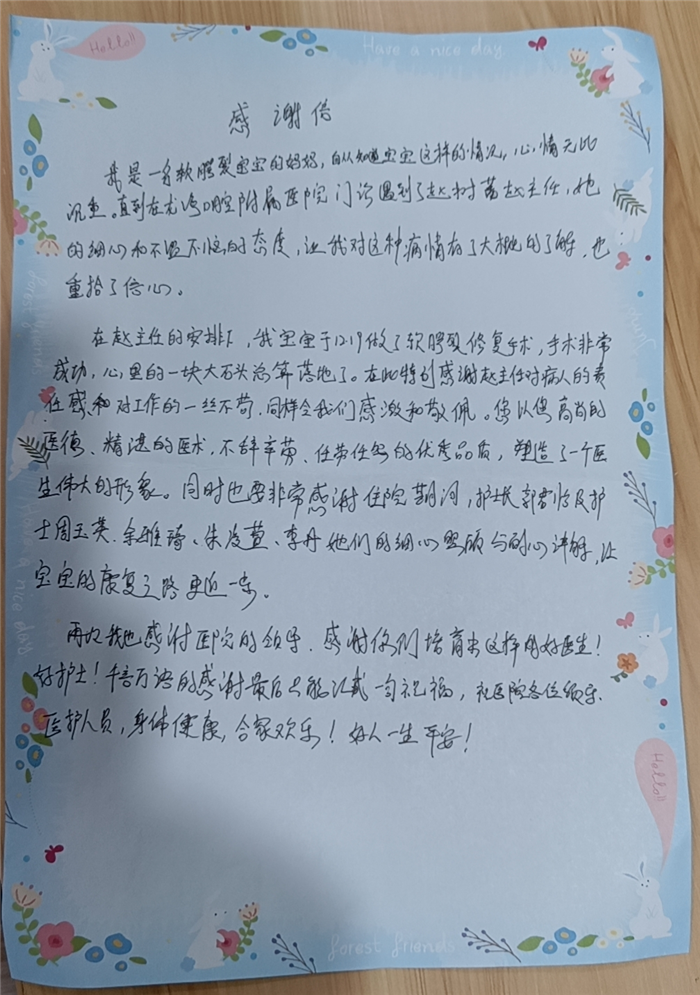 Hello!!
Have a nice day
感谢信
我是一名软腭裂宝宝的妈妈，自从知道宝宝这样的情况，心情无比
沉重。直到在 口腔附属医院门诊遇到了赵树蕃赵主任，她
的细心和不温不恼的态度，让我对这种病情有了大概的了解，也
重拾了信心。
在赵主任的安排下，我宝宝于12.19做了软腭裂修复手术，手术非常
成功，心里的一块大石头总算落地了。在此特别感谢赵主任对病人的责
任感和对工作的一丝不苟，同样令我们感激和敬佩。您以您高尚的
医德、精湛的医术，不辞辛劳、任劳任怨的优秀品质，塑造了一个医
生伟大的形象。同时也要非常感谢住院期间，护士长 及护
士周玉英、余雅琦、朱凌萱、李丹她们的细心照顾与耐心讲解，让
宝宝的康复之路更近一步。
再次我也感谢医院的领导、感谢你们培育出这样的好医生！
好护士！千言万语的感谢最后只能汇成一句祝福，祝医院各位领导、
医护人员，身体健康，合家欢乐！好人一生平安！
Hello!!
forest friends